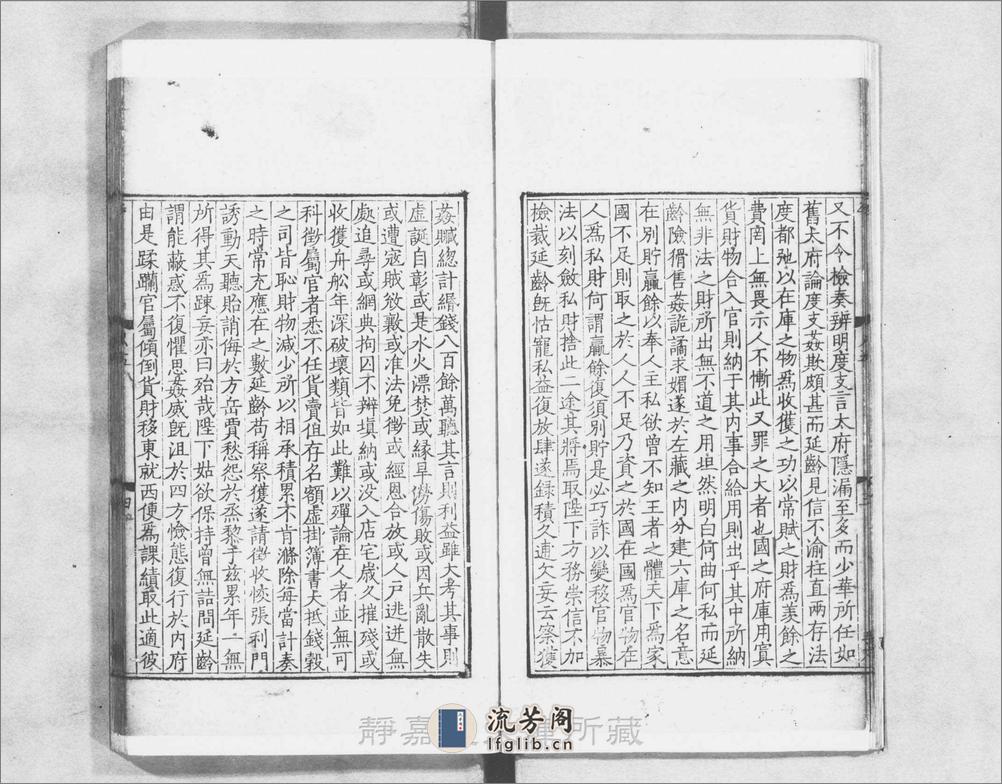 又不令檢奏辨明度支言太府隱漏至多而少華所任如
舊太府論度支姦欺頗甚而延齡見信不渝枉直兩存法
度都弛以在庫之物爲收獲之功以常賦之財爲羨餘之
費罔上無畏示人不慙此又罪之大者也國之府庫用寘
貨財物合入官則納于其內事合給用則出乎其中所納
無非法之財所出無不道之用坦然明白何曲何私而延
齡險猾售姦詭譎求媚遂於左藏之內分建六庫之名意
在別貯贏餘以奉人主私欲曾不知王者之體天下爲家
國不足則取之於人人不足乃資之於國在國爲官物在
人爲私財何謂贏餘復須別貯是必巧詐以變移官物暴
法以刻斂私財捨此二途其將焉取陛下方務崇信不加
檢裁延齡旣怙寵私益復放肆遂錄積久逋欠妄云察獲
姦贓總計緡錢八百餘萬聽其言則利益雖大考其事則
虛誕自彰或是水火漂焚或緣旱澇傷敗或因兵亂散失
或遭寇賊敓攘或准法免徵或經恩合放或人戶逃迸無
處追尋或綱典拘囚不辦塡納或没入店宅歲久摧殘或
收獲舟舩年深破壞類皆如此難以殫論在人者並無可
科徵屬官者悉不任貨賣但存名額虛掛簿書大抵錢穀
之司皆恥財物減少所以相承積累不肯滌除每當計奏
之時常充應在之數延齡苟稱察獲遂請徵收恢張利門
誘動天聽貽誚侮於方岳賈愁怨於烝黎于兹累年一無
所得其爲踈妄亦曰殆哉陛下姑欲保持曾無詰問延齡
謂能蔽惑不復懼思姦威旣沮於四方憸態復行於内府
由是蹂躪官屬傾倒貨財移東就西便爲課績取此適彼
靜嘉所藏
流芳阁
lfglib.cn